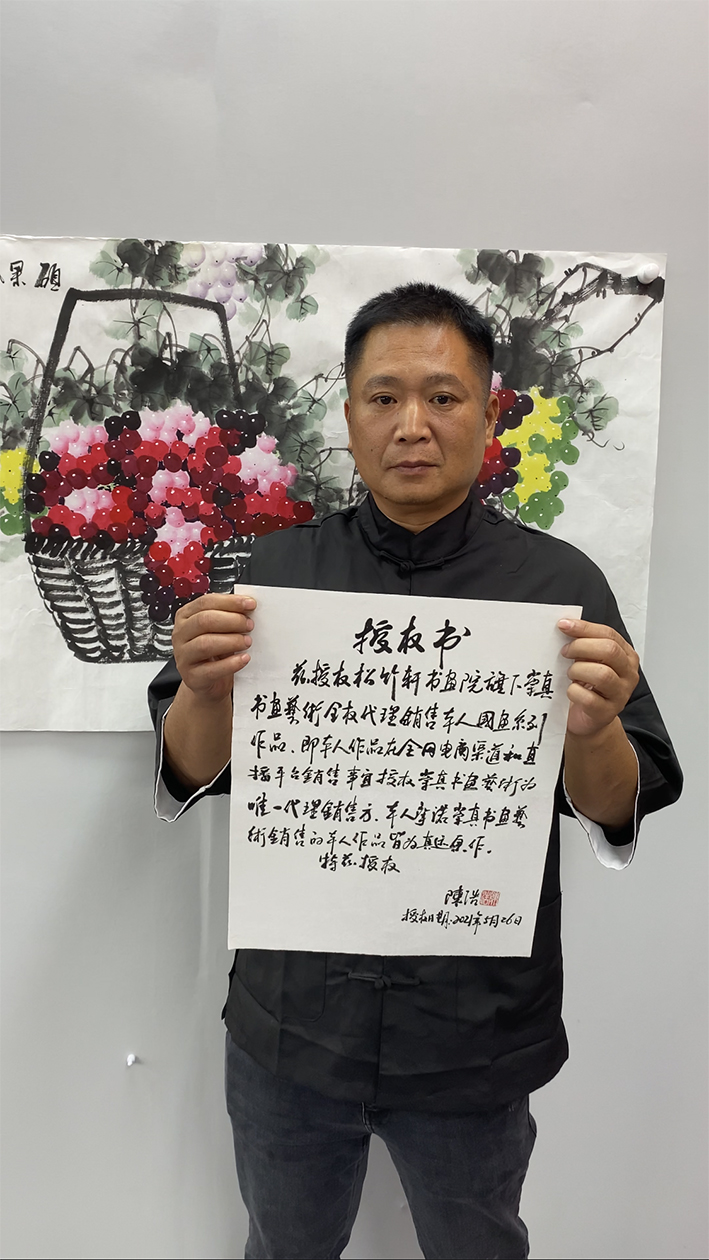 硕果
授权书
兹授权松竹轩书画院旗下崇真
书画藝術全权代理銷售本人國画系列
作品、即本人作品在全网电商渠道和直
播平台銷售事宜授权崇真书画藝術为
唯一代理銷售方、本人承诺崇真书画藝
術銷售的本人作品皆为真迹原作。
特兹授权
陳浩
授权日期:2021年5月26日